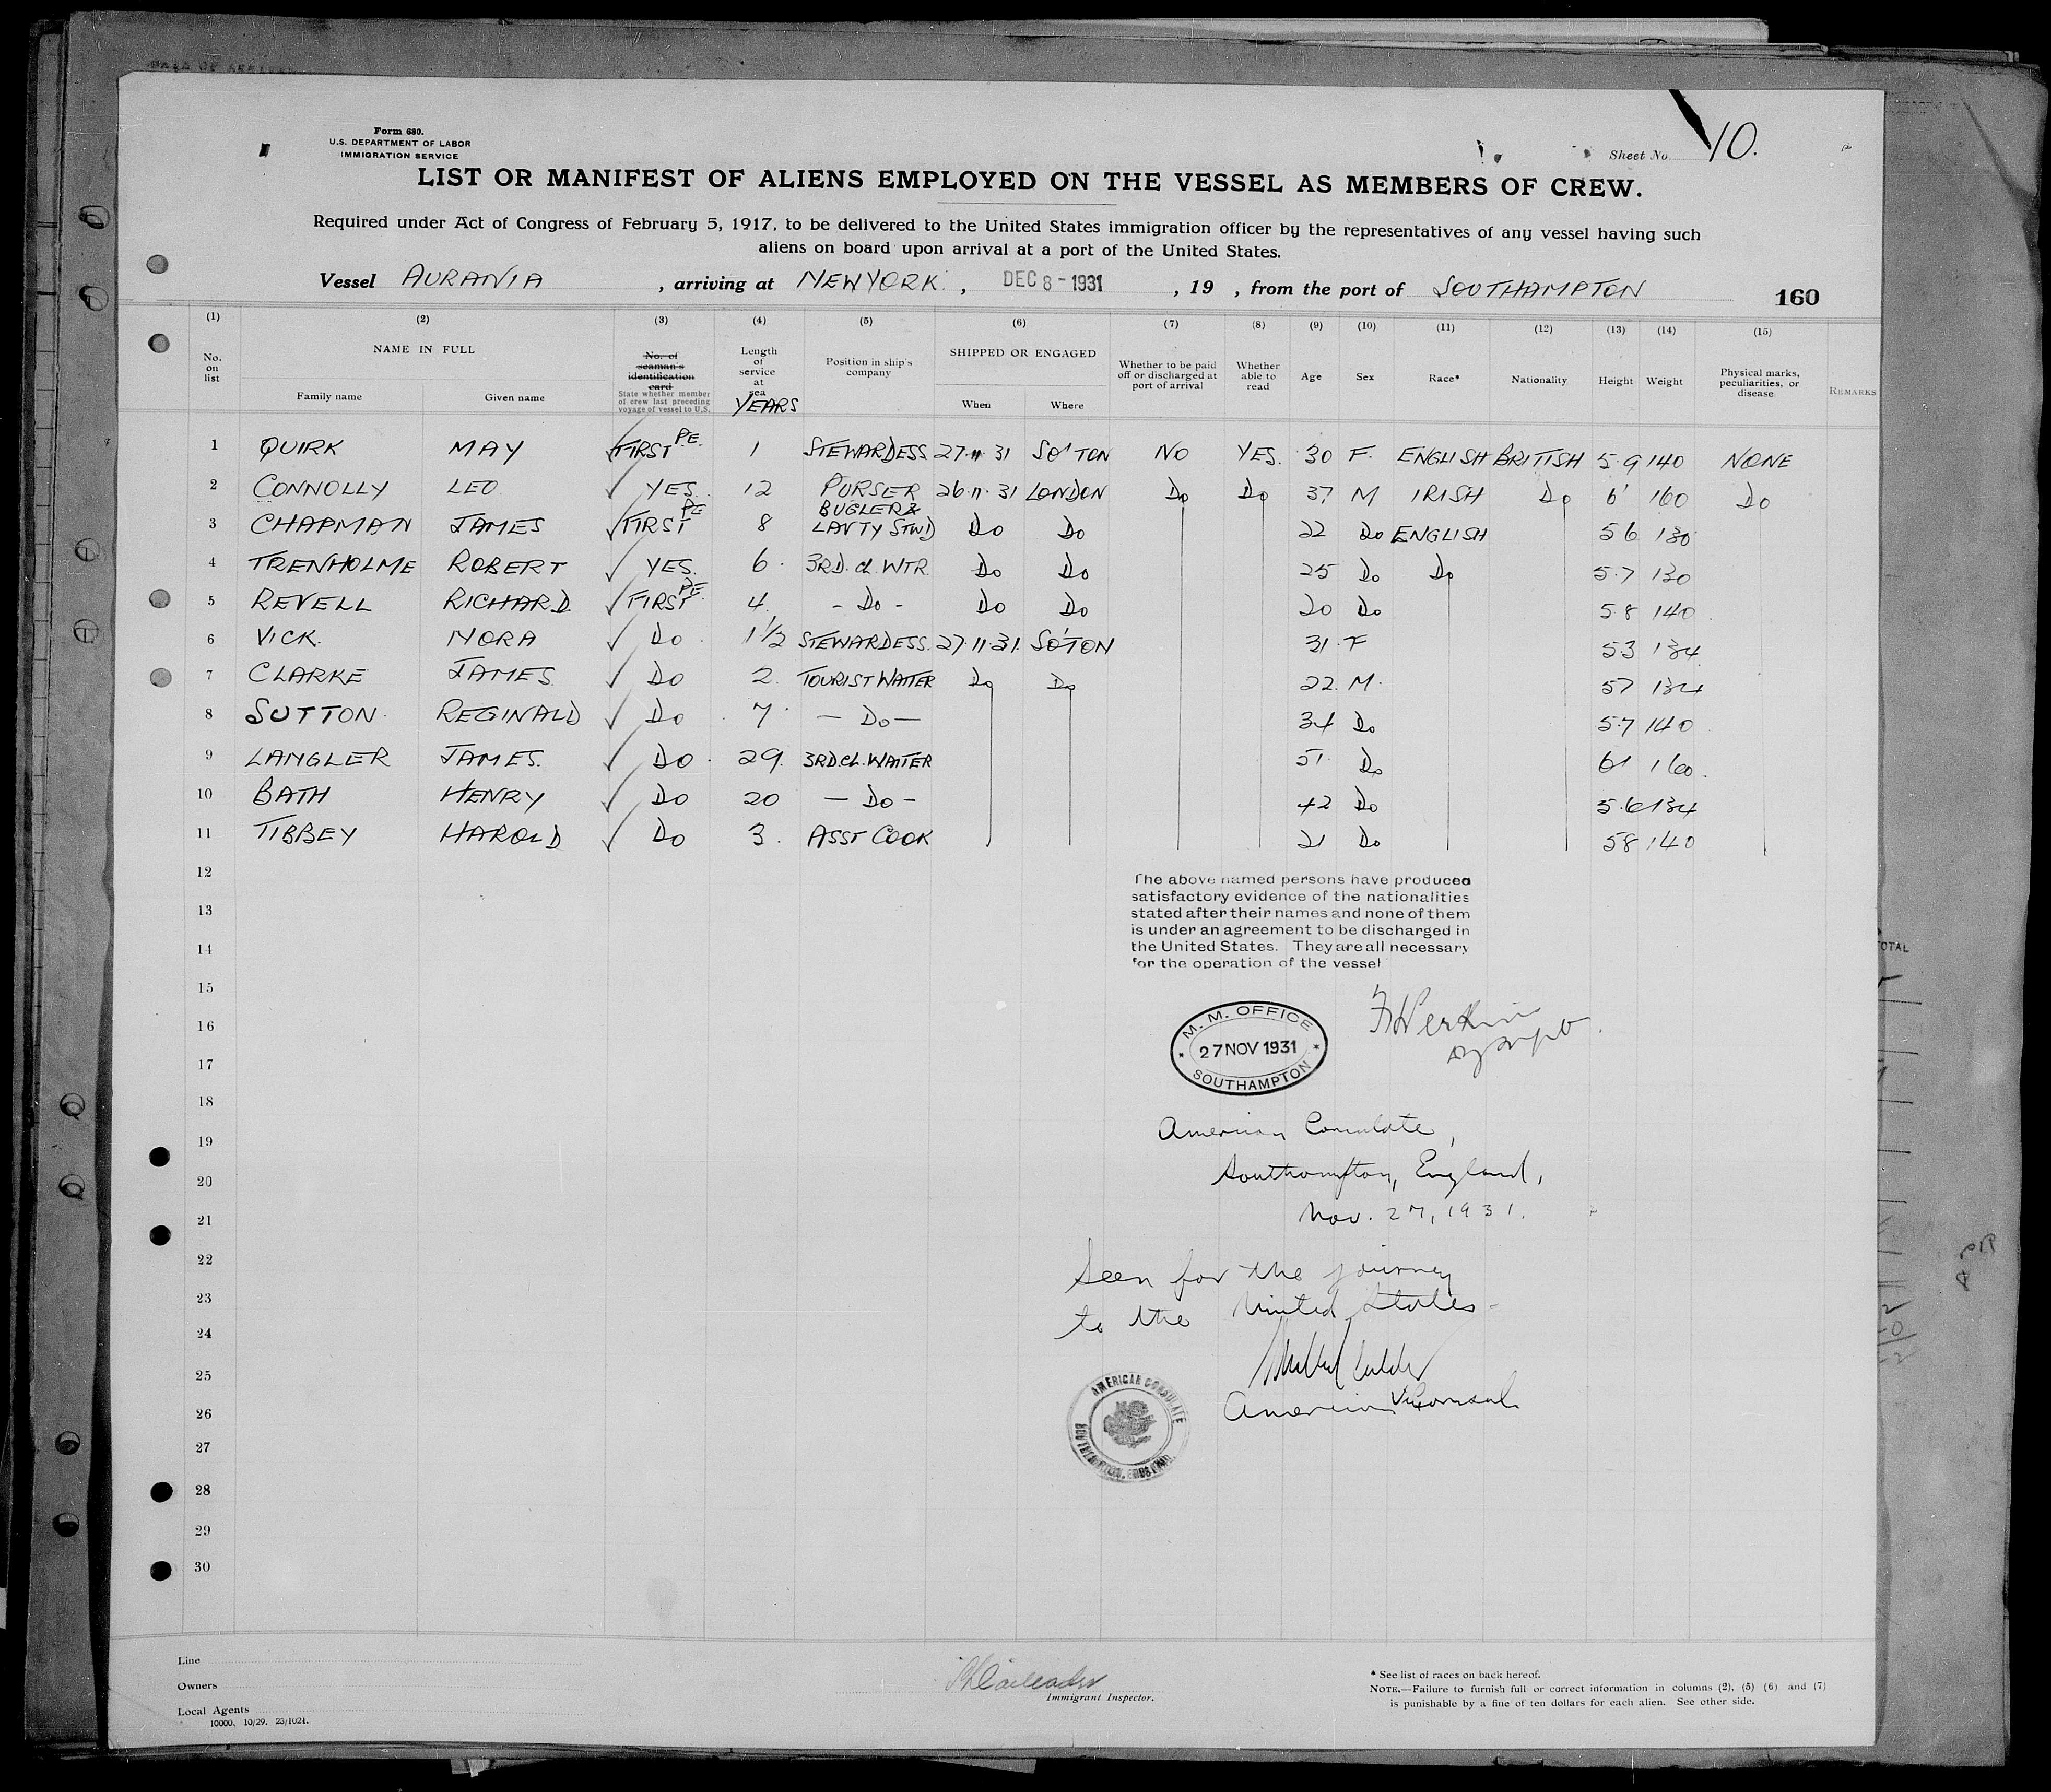 Form 680.
U.S. DEPARTMENT OF LABOR
IMMIGRATION SERVICE
Sheet No. 10.
LIST OR MANIFEST OF ALIENS EMPLOYED ON THE VESSEL AS MEMBERS OF CREW.
Required under Act of Congress of February 5, 1917, to be delivered to the United States immigration officer by the representatives of any vessel having such
aliens on board upon arrival at a port of the United States.
Vessel AURANIA, arriving at NEW YORK, DEC 8-1931, 19 , from the port of SOUTHAMPTON 160
(1) (2) (3) (4) (5) (6) (7) (8) (9) (10) (11) (12) (13) (14) (15)
No. on list NAME IN FULL Family name Given name No. of seaman's identification card State whether member of crew last preceding voyage of vessel to U.S. Length of service at sea YEARS Position in ship's company SHIPPED OR ENGAGED When Where Whether to be paid off or discharged at port of arrival Whether able to read Age Sex Race* Nationality Height Weight Physical marks, peculiarities, or disease REMARKS
1 QUIRK MAY FIRST P.E. 1 STEWARDESS 27·11·31 SO'TON NO YES. 30 F. ENGLISH BRITISH 5.9 140 NONE
2 CONNOLLY LEO YES. 12 PURSER 26·11·31 LONDON Do Do 37 M IRISH Do 6' 160 Do
3 CHAPMAN JAMES FIRST PE 8 BUGLER & LAVTY STWD Do Do 22 Do ENGLISH 5 6 130
4 TRENHOLME ROBERT YES. 6 3RD. CL. WTR. Do Do 25 Do Do 5.7 130
5 REVELL RICHARD. FIRST PE. 4 - Do - Do Do 20 Do 5 8 140
6 VICK. NORA Do 1 1/2 STEWARDESS. 27·11·31. SO'TON 31 F 5.3 134
7 CLARKE JAMES Do 2 TOURIST WAITER Do Do 22 M. 57 134
8 SUTTON REGINALD Do 7 — Do — 34 Do 5.7 140
9 LANGLER JAMES. Do 29 3RD.CL.WAITER 51 Do 61 160.
10 BATH HENRY Do 20 — Do - 42 Do 5.6 134
11 TIBBEY HAROLD Do 3. ASST COOK 21 Do 58 140
12
The above named persons have produced
satisfactory evidence of the nationalities
13
stated after their names and none of them
is under an agreement to be discharged in
14
the United States. They are all necessary
for the operation of the vessel
15
16
M. M. OFFICE
27 NOV 1931
SOUTHAMPTON
17
18
19
American Consulate,
20
Southampton, England,
21
Nov. 27, 1931.
22
Seen for the journey
23
to the United States.
24
25
26
American Vice Consul
AMERICAN CONSULATE
SOUTHAMPTON, ENGLAND.
27
28
29
30
Line
Owners
Local Agents
10000. 10/29. 23/1024.
Immigrant Inspector.
* See list of races on back hereof.
NOTE.—Failure to furnish full or correct information in columns (2), (5) (6) and (7)
is punishable by a fine of ten dollars for each alien. See other side.
TOTAL